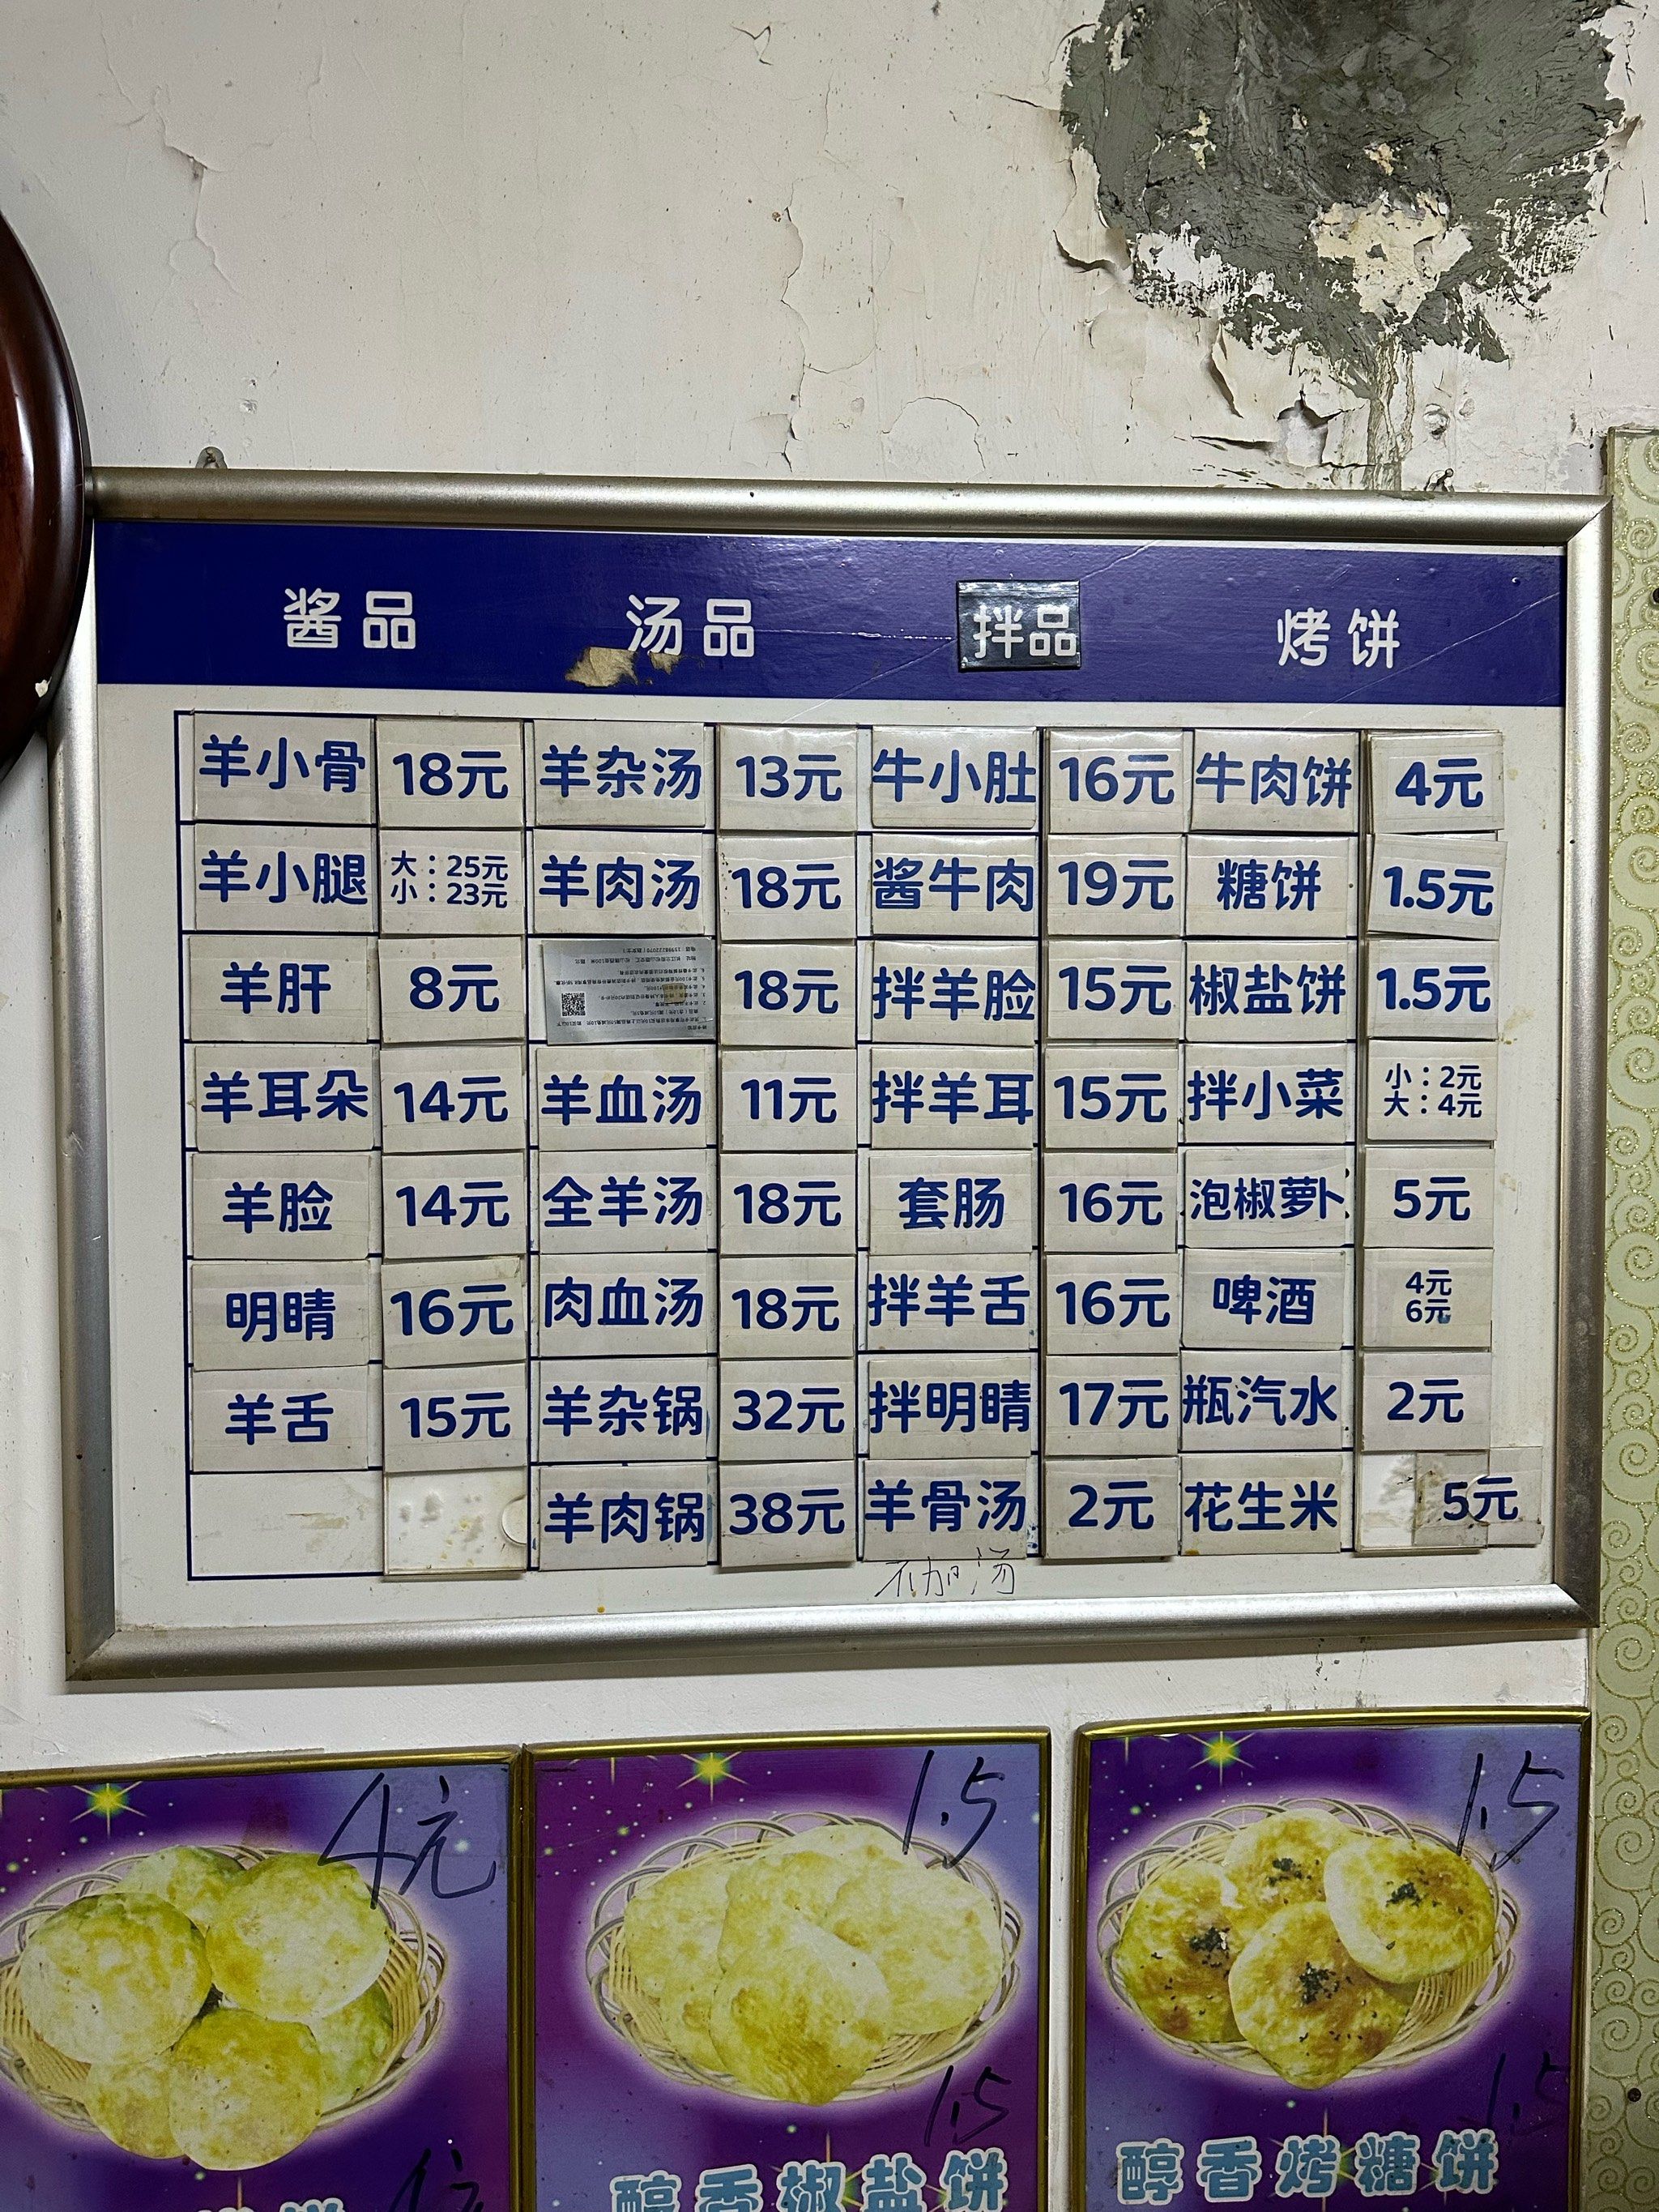 酱品 汤品 拌品 烤饼
羊小骨 18元 羊杂汤 13元 牛小肚 16元 牛肉饼 4元
羊小腿 大：25元 小：23元 羊肉汤 18元 酱牛肉 19元 糖饼 1.5元
羊肝 8元 18元 拌羊脸 15元 椒盐饼 1.5元
羊耳朵 14元 羊血汤 11元 拌羊耳 15元 拌小菜 小：2元 大：4元
羊脸 14元 全羊汤 18元 套肠 16元 泡椒萝卜 5元
明睛 16元 肉血汤 18元 拌羊舌 16元 啤酒 4元 6元
羊舌 15元 羊杂锅 32元 拌明睛 17元 瓶汽水 2元
羊肉锅 38元 羊骨汤 2元 花生米 5元
不加汤
4元 1.5 1.5
1.5 1.5
醇香椒盐饼 醇香烤糖饼